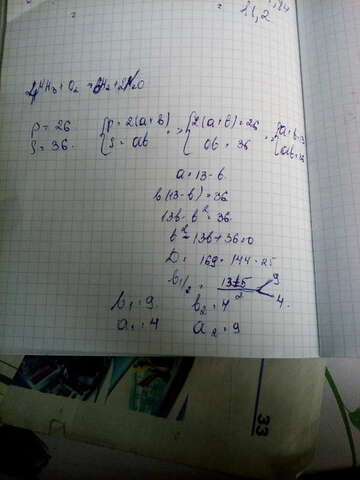 11,2
4NH3 + O2 = 6H2 + 2N2O
P = 26 { P = 2(a+b) => { 2(a+b) = 26 => { a+b=13
S = 36. { S = ab { ab = 36 { ab=36
a = 13 - b
b(13-b) = 36
13b - b² = 36
b² - 13b + 36 = 0
D = 169 - 144 = 25
b1/2 = 13±5 / 2 9
4.
b1 = 9 b2 = 4
a1 = 4 a2 = 9
33